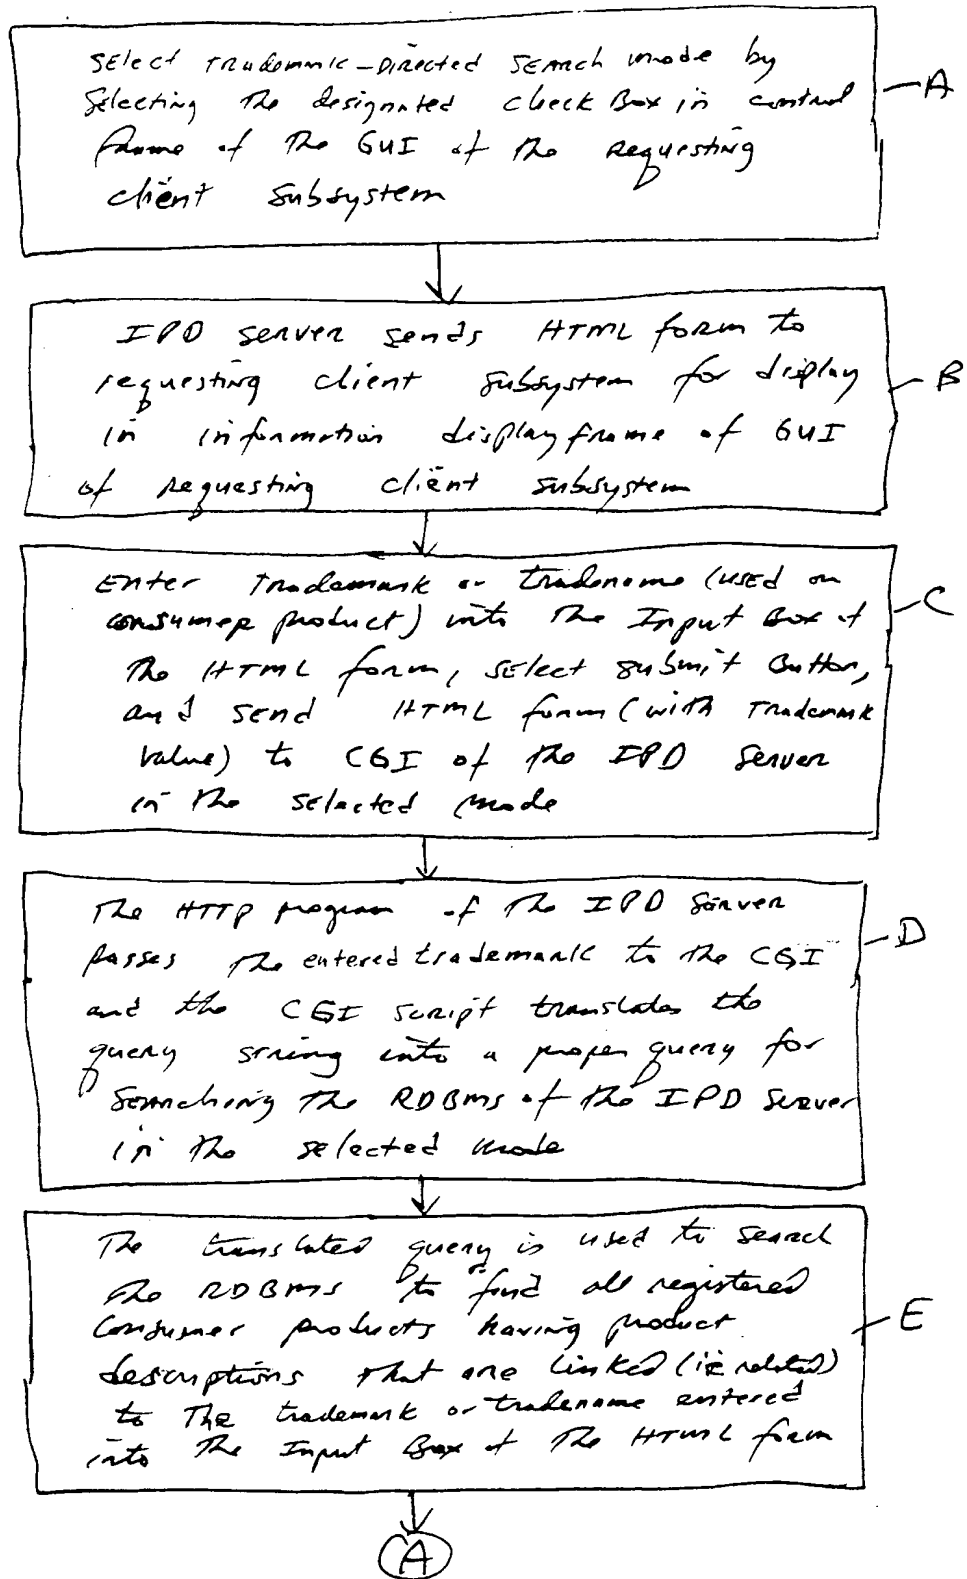 Select Trademark-Directed Search mode by
Selecting the designated check Box in control
frame of the GUI of the requesting
client subsystem
A
IPD Server sends HTML form to
requesting client subsystem for display
in information display frame of GUI
of requesting client subsystem
B
Enter Trademark or tradename (used on
consumer product) into the Input Box of
the HTML form, select submit Button,
and send HTML form (with Trademark
value) to CGI of the IPD Server
in the selected mode
C
The HTTP program of the IPD Server
passes the entered trademark to the CGI
and the CGI script translates the
query string into a proper query for
Searching the RDBMS of the IPD Server
in the selected mode
D
The translated query is used to search
the RDBMS to find all registered
Consumer products having product
descriptions that are linked (ie related)
to the trademark or tradename entered
into the Input Box of the HTML form
E
A